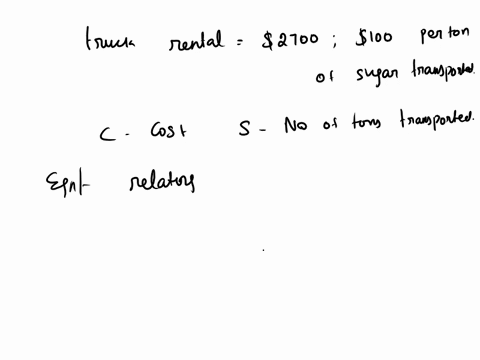 truck rental = $2700 ; $100 per ton
of sugar transported.
C - Cost S - No of tons transported.
Eqnt relatory